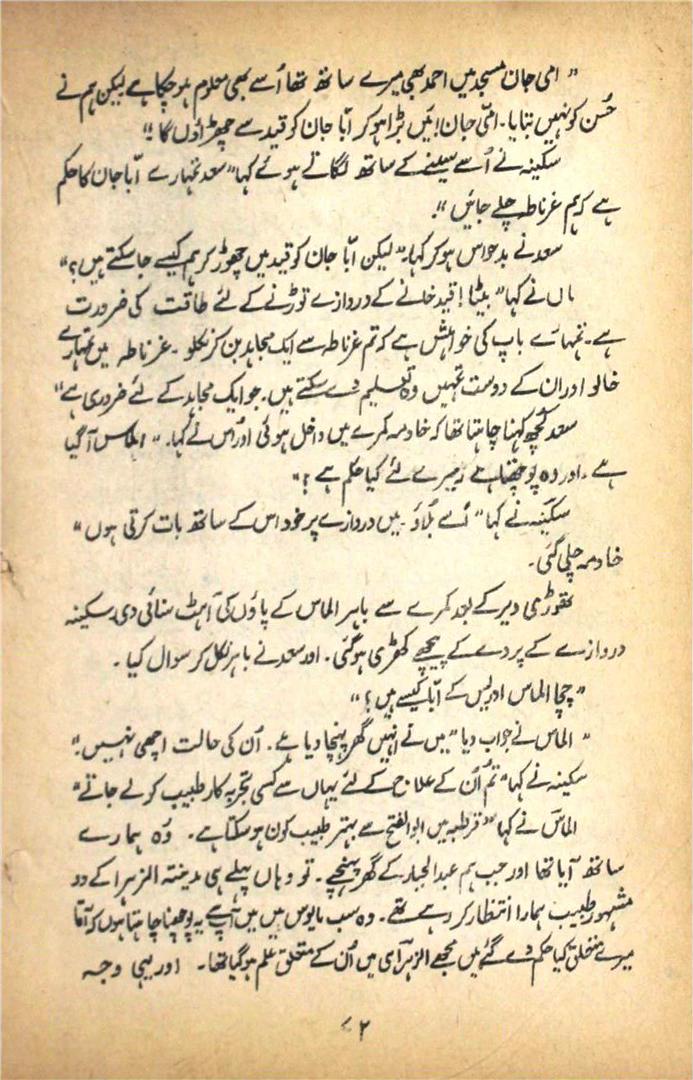 " امی جان مسجد میں احمد بھی میرے ساتھ تھا اُسے بھی معلوم ہو چکا ہے لیکن ہم نے
حُسن کو نہیں بتایا۔ امّی جان! میں بڑا ہو کر ابّا جان کو قید سے چھڑاؤں گا!"
سکینہ نے اُسے سینے کے ساتھ لگاتے ہوئے کہا "سعد تمہارے ابّا جان کا حکم
ہے کہ ہم غرناطہ چلے جائیں"۔
سعد نے بدحواس ہو کر کہا۔ "لیکن ابّا جان کو قید میں چھوڑ کر ہم کیسے جا سکتے ہیں؟"
ماں نے کہا "بیٹا! قید خانے کے دروازے توڑنے کے لئے طاقت کی ضرورت
ہے۔ تمہارے باپ کی خواہش ہے کہ تم غرناطہ سے ایک مجاہد بن کر نکلو۔ غرناطہ میں تمہارے
خالو اور ان کے دوست تمہیں وہ تعلیم دے سکتے ہیں۔ جو ایک مجاہد کے لئے ضروری ہے"
سعد کچھ کہنا چاہتا تھا کہ خادمہ کمرے میں داخل ہوئی اور اُس نے کہا۔ "الماس آ گیا
ہے۔ اور وہ پوچھتا ہے کہ میرے لئے کیا حکم ہے؟"
سکینہ نے کہا "اُسے بُلاؤ۔ میں دروازے پر خود اس کے ساتھ بات کرتی ہوں"
خادمہ چلی گئی۔
تھوڑی دیر کے بعد کمرے سے باہر الماس کے پاؤں کی آہٹ سنائی دی۔ سکینہ
دروازے کے پردے کے پیچھے کھڑی ہو گئی۔ اور سعد نے باہر نکل کر سوال کیا۔
"چچا الماس ادریس کے ابّا کیسے ہیں؟"
"الماس نے جواب دیا "میں نے انہیں گھر پہنچا دیا ہے۔ اُن کی حالت اچھی نہیں۔"
سکینہ نے کہا "تم اُن کے علاج کے لئے یہاں سے کسی تجربہ کار طبیب کو لے جاتے"
الماس نے کہا "قرطبہ میں ابوالفتح سے بہتر طبیب کون ہو سکتا ہے۔ وُہ ہمارے
ساتھ آیا تھا اور جب ہم عبدالجبار کے گھر پہنچے۔ تو وہاں پہلے ہی مدینتہ الزہرا کے دو
مشہور طبیب ہمارا انتظار کر رہے تھے۔ وہ سب مایوس ہیں میں آپ سے یہ پوچھنا چاہتا ہوں کہ آقا
میرے متعلق کیا حکم دے گئے ہیں مجھے الزہرا ہی میں اُن کے متعلق علم ہو گیا تھا۔ اور یہی وجہ
۷۲